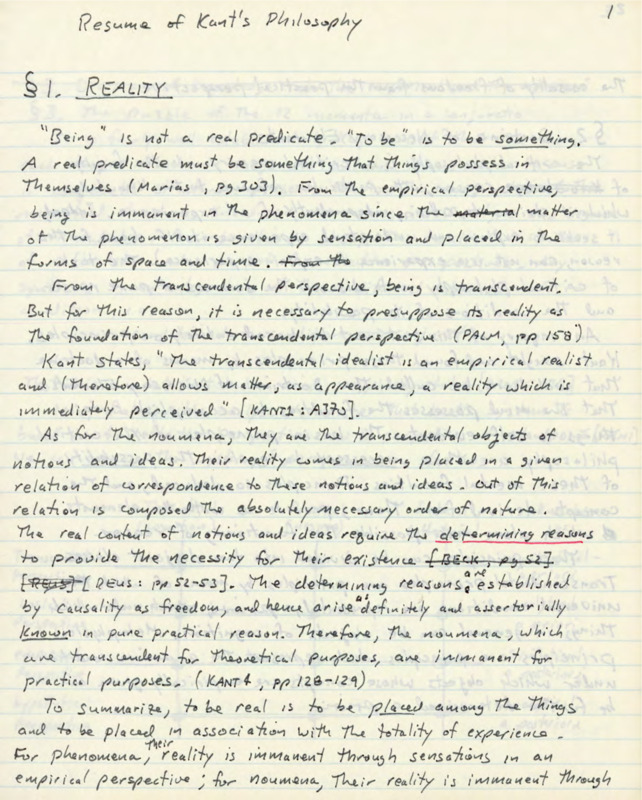 1
Resume of Kant's Philosophy
§ 1. REALITY
"Being" is not a real predicate. "To be" is to be something.
A real predicate must be something that things possess in
themselves (Marias, pg 303). From the empirical perspective,
being is immanent in the phenomena since the material matter
of the phenomenon is given by sensation and placed in the
forms of space and time. From the
From the transcendental perspective, being is transcendent.
But for this reason, it is necessary to presuppose its reality as
the foundation of the transcendental perspective (PALM, pp 158)
Kant states, "The transcendental idealist is an empirical realist
and (therefore) allows matter, as appearance, a reality which is
immediately perceived" [KANT1: A370].
As for the noumena, they are the transcendental objects of
notions and ideas. Their reality comes in being placed in a given
relation of correspondence to these notions and ideas. Out of this
relation is composed the absolutely necessary order of nature.
The real content of notions and ideas require the determining reasons
to provide the necessity for their existence [BECK, pg 52]
[Deus: pp 52-53]. The determining reasons are established
by causality as freedom, and hence arise as definitely and assertorially
known in pure practical reason. Therefore, the noumena, which
are transcendent for theoretical purposes, are immanent for
practical purposes. (KANT4, pp 128-129)
To summarize, to be real is to be placed among the things
and to be placed in association with the totality of experience.
For phenomena, their reality is immanent through sensations in an
empirical perspective; for noumena, their reality is immanent through